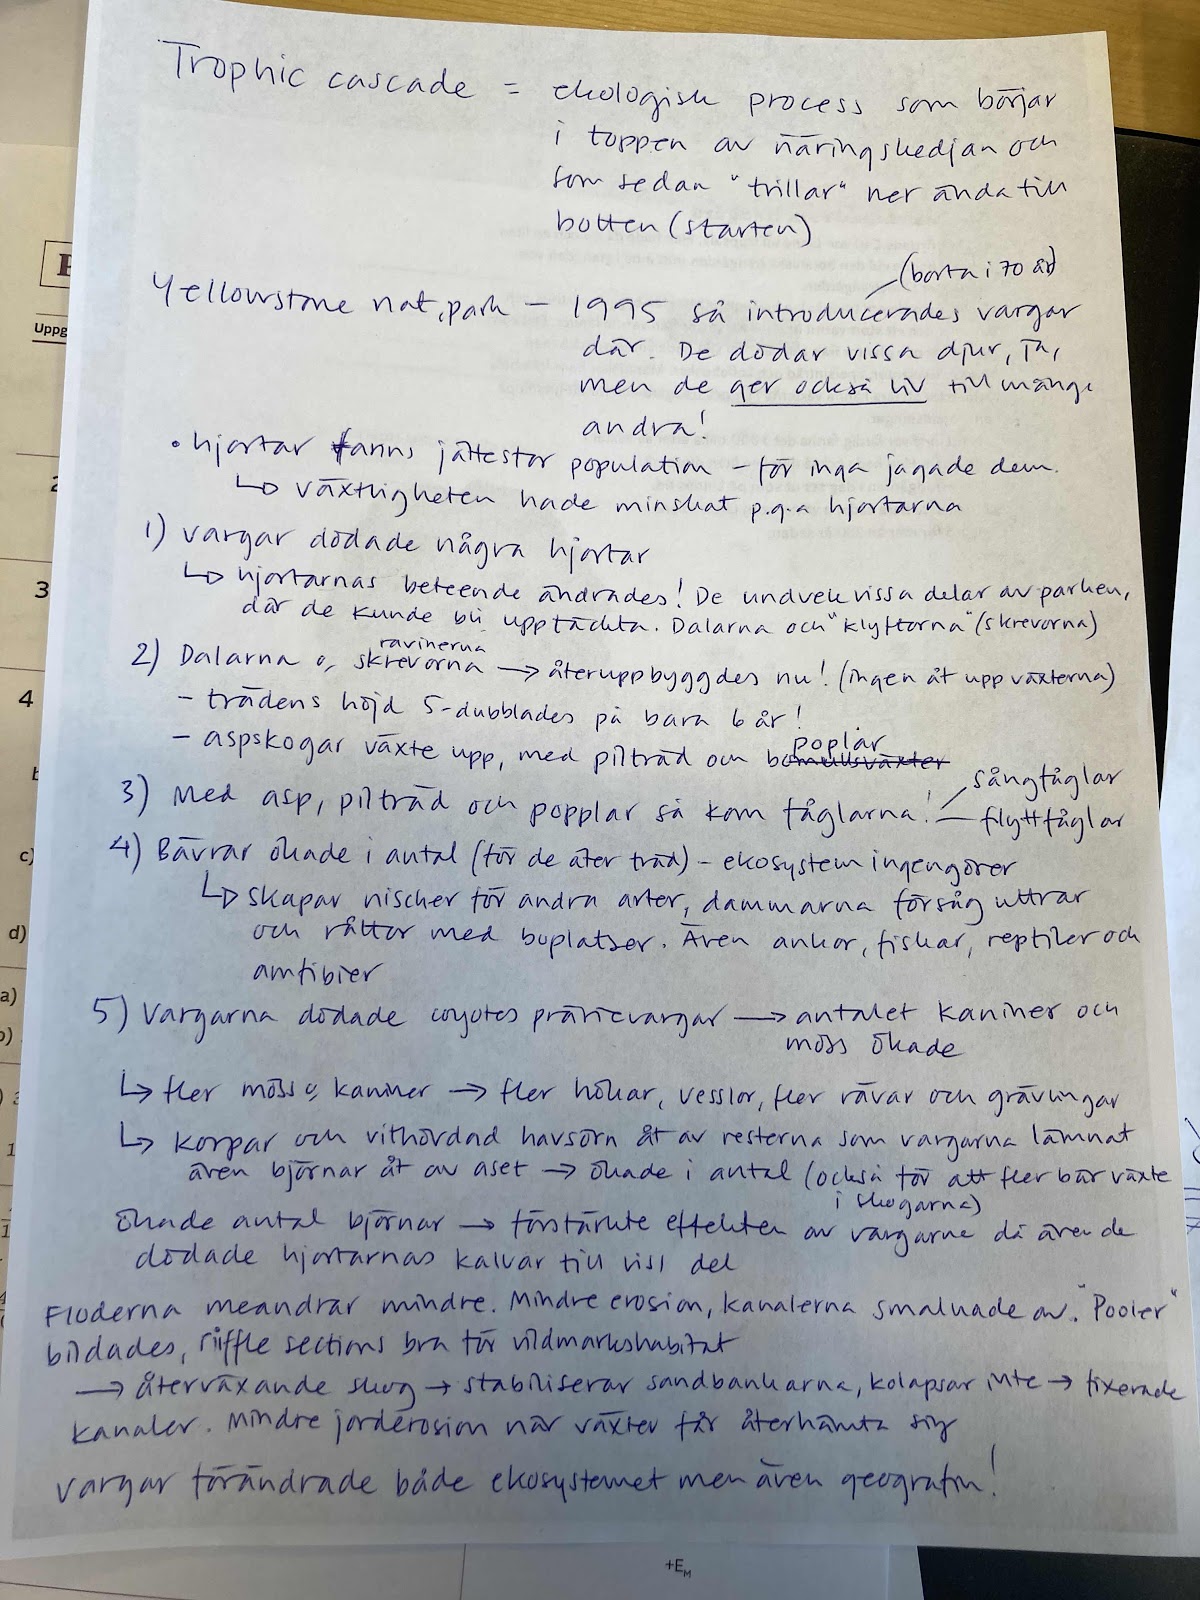 Trophic cascade = ekologisk process som börjar
i toppen av näringskedjan och
som sedan "trillar" ner ända till
botten (starten)
(borta i 70 år)
Yellowstone nat. park – 1995 så introducerades vargar
där. De dödar vissa djur, ja,
men de ger också liv till många
andra!
• hjortar fanns jättestor population – för inga jagade dem.
↳ växtligheten hade minskat p.g.a hjortarna
1) vargar dödade några hjortar
↳ hjortarnas beteende ändrades! De undvek vissa delar av parken,
där de kunde bli upptäckta. Dalarna och "klyftorna" (skrevorna)
ravinerna
2) Dalarna o, skrevorna → återuppbyggdes nu! (ingen åt upp växterna)
– trädens höjd 5-dubblades på bara 6 år!
poplar
– aspskogar växte upp, med pilträd och bomullsväxter
sångfåglar
3) Med asp, pilträd och popplar så kom fåglarna! – flyttfåglar
4) Bävrar ökade i antal (för de äter träd) – ekosystem ingengörer
↳ skapar nischer för andra arter, dammarna försåg uttrar
och råttor med boplatser. Även ankor, fiskar, reptiler och
amfibier
5) Vargarna dödade coyotes prärievargar → antalet kaniner och
möss ökade
↳ fler möss o, kaniner → fler hökar, vesslor, fler rävar och grävlingar
↳ korpar och vithövdad havsörn åt av resterna som vargarna lämnat
även björnar åt av aset → ökade i antal (också för att fler bär växte
i skogarna)
Ökade antal björnar → förstärkte effekten av vargarna då även de
dödade hjortarnas kalvar till viss del
Floderna meandrar mindre. Mindre erosion, kanalerna smalnade av. "Pooler"
bildades, riffle sections bra för vildmarkshabitat
→ återväxande skog → stabiliserar sandbankarna, kolapsar inte → fixerade
kanaler. Mindre jorderosion när växter får återhämta sig
vargar förändrade både ekosystemet men även geografin!
Uppg
3
4
c)
d)
a)
+E_M